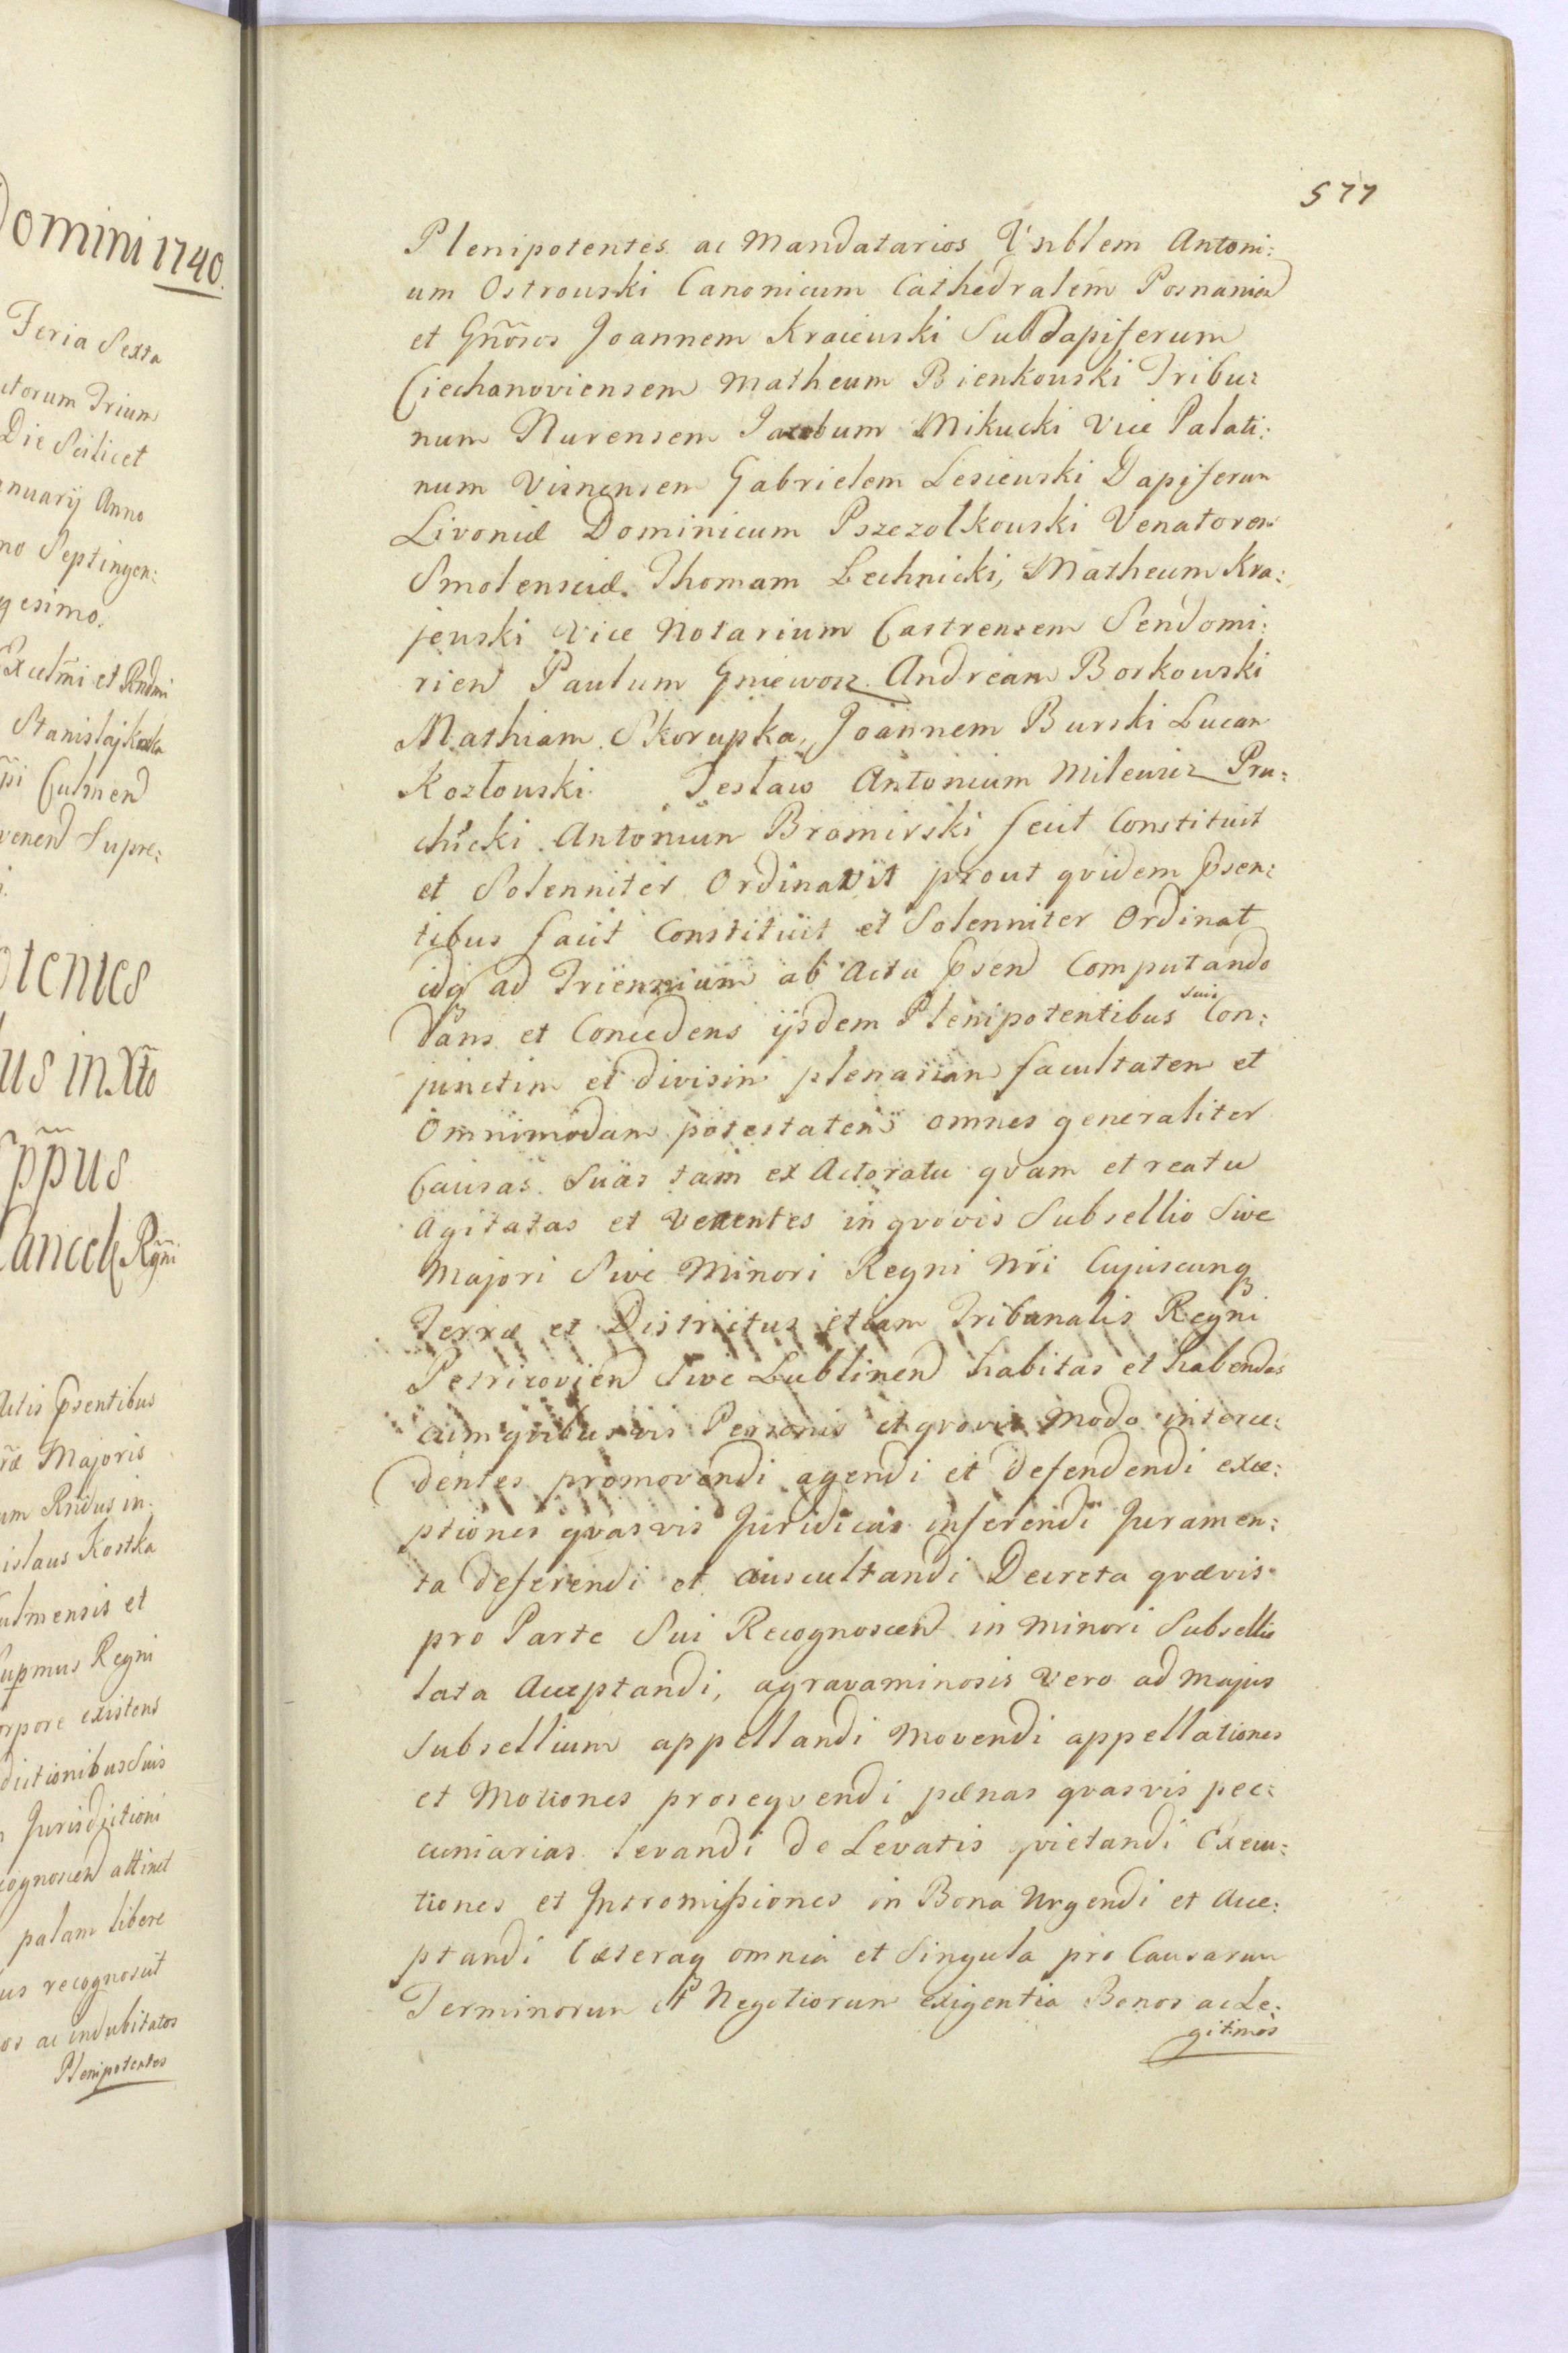 Domini 1740.
Feria Sexta
ctorum Trium
Die Scilicet
anuarij Anno
no Septingen:
gesimo.
Excelm̃i et Rndmi
Stanislaj Kostka
pi Culmen
venen Supre:
otentes
us in Xto
Eppus
Cancel Rgni
Actis psentibus
ræ Majoris
um Rndus in
islaus Kostka
Culmensis et
Supmus Regni
orpore existens
dictionibus Suis
Jurisdictioni
cognoscen attinet
palam libere
us recognovit
os ac indubitatos
Plenipotentes
577
Plenipotentes ac Mandatarios Vnblem Antoni:
um Ostrowski Canonicum Cathedralem Posnanien
et Gñosos Joannem Kraiewski Subdapiferum
Ciechanoviensem Matheum Bienkowski Tribu:
num Nurensem Jacobum Mikucki Vice Palati:
num Visnensem Gabrielem Lesiewski Dapiferum
Livoniæ Dominicum Pszczolkowski Venatorem
Smolensciæ Thomam Lechnicki, Matheum Kra:
jewski Vice Notarium Castrensem Sendomi:
rien Paulum Gniewosz Andream Borkowski
Mathiam Skorupka, Joannem Burski Lucam
Kozłowski Jesław Antonium Milewicz Pru:
chicki Antonium Bromirski fecit Constituit
et Solenniter Ordinavit prout qvidem psen:
tibus facit Constituit et Solenniter Ordinat
idq ad Triennium ab Actu psen Computando
Dans et Concedens ijsdem Plenipotentibus suis Con:
junctim et divisim plenariam facultatem et
Omnimodam potestatem omnes generaliter
Causas Suas tam ex Actoratu qvam et reatu
Agitatas et Vertentes in qvovis Subsellio Sive
Majori Sive Minori Regni Nri Cujuscunq
Terræ et Districtus etiam Tribunalis Regni
Petricovien Sive Lublinen habitas et habendas
cum qvibusvis Personis et qvovis Modo interce:
dentes promovendi agendi et defendendi exce:
ptiones qvasvis Juridicas inferendi Juramen:
ta deferendi et auscultandi Decreta qvævis
pro Parte Sui Recognoscen in Minori Subsellio
lata Acceptandi, agravaminosis Vero ad Majus
Subsellium appellandi Movendi appellationes
et Motiones proseqvendi pænas qvasvis pec:
cuniarias levandi de Levatis qvietandi Execu:
tiones et Intromissiones in Bona Urgendi et Acce:
ptandi Cæteraq omnia et Singula pro Causarum
Terminorum et Negotiorum exigentia Bonos ac Le:
gitimos